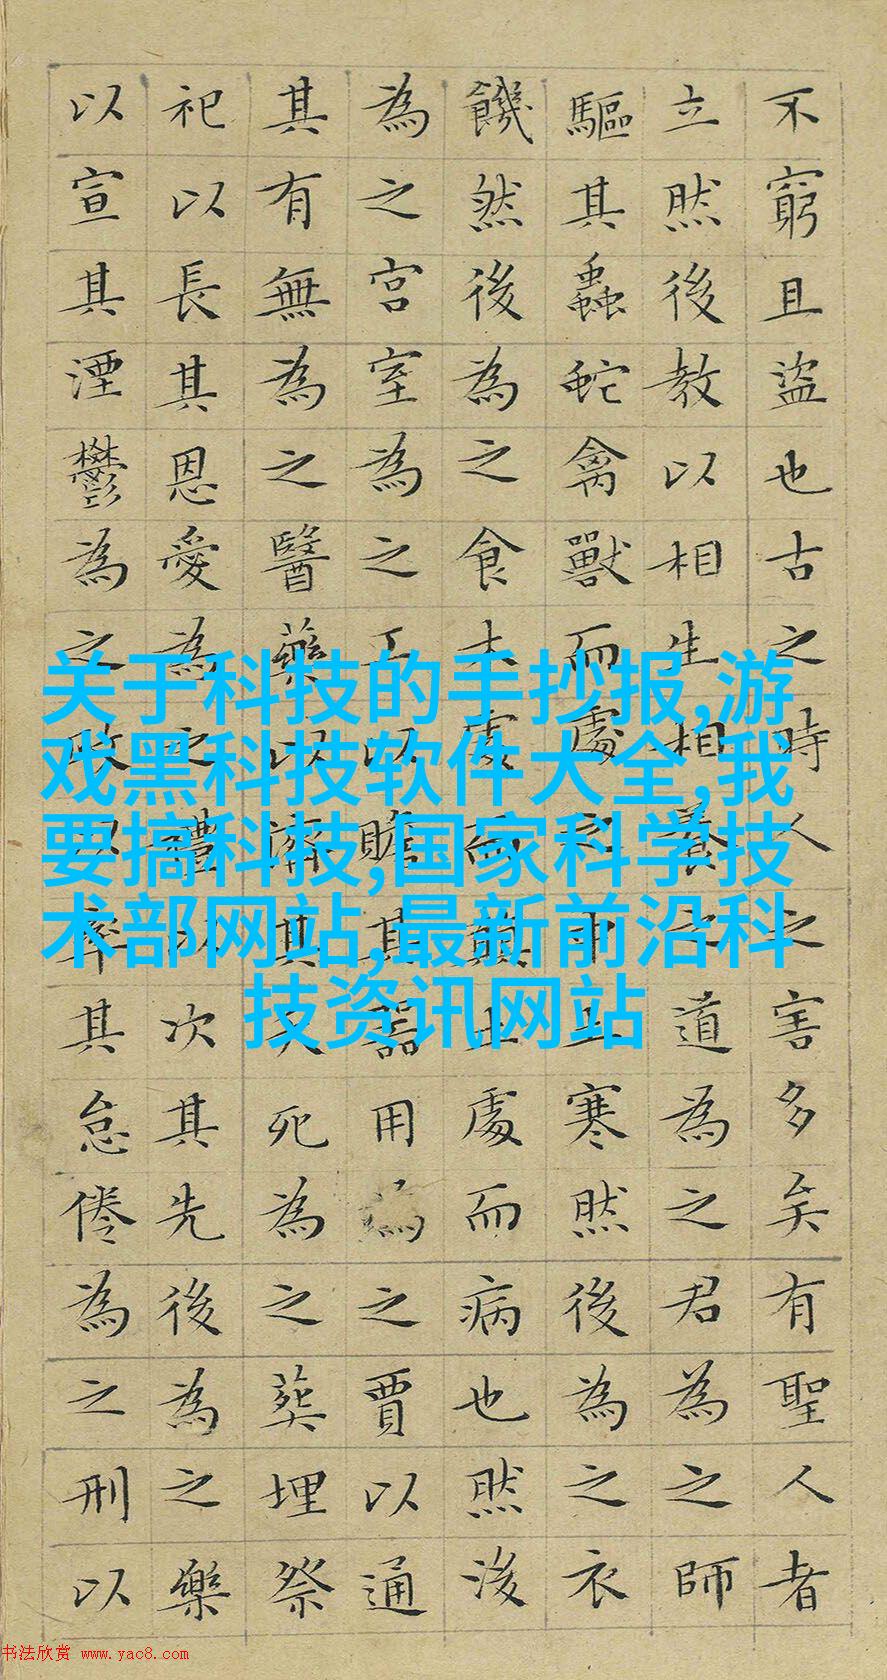 不窮且盜也古之時人之害多矣有聖人者
立然後教以相生相養之道為之君為之師
驅其蟲蛇禽獸而處之中土寒然後為之衣
饑然後為之食木處而顛土處而病也然後
為之宮室為之工以贍其器用為之賈以通
其有無為之醫藥以濟其夭死為之葬埋祭
祀以長其恩愛為之禮以次其先後為之樂
以宣其湮鬱為之政以率其怠倦為之刑以
关于科技的手抄报,游
戏黑科技软件大全,我
要搞科技,国家科学技
术部网站,最新前沿科
技资讯网站
书法欣赏 www.yac8.com